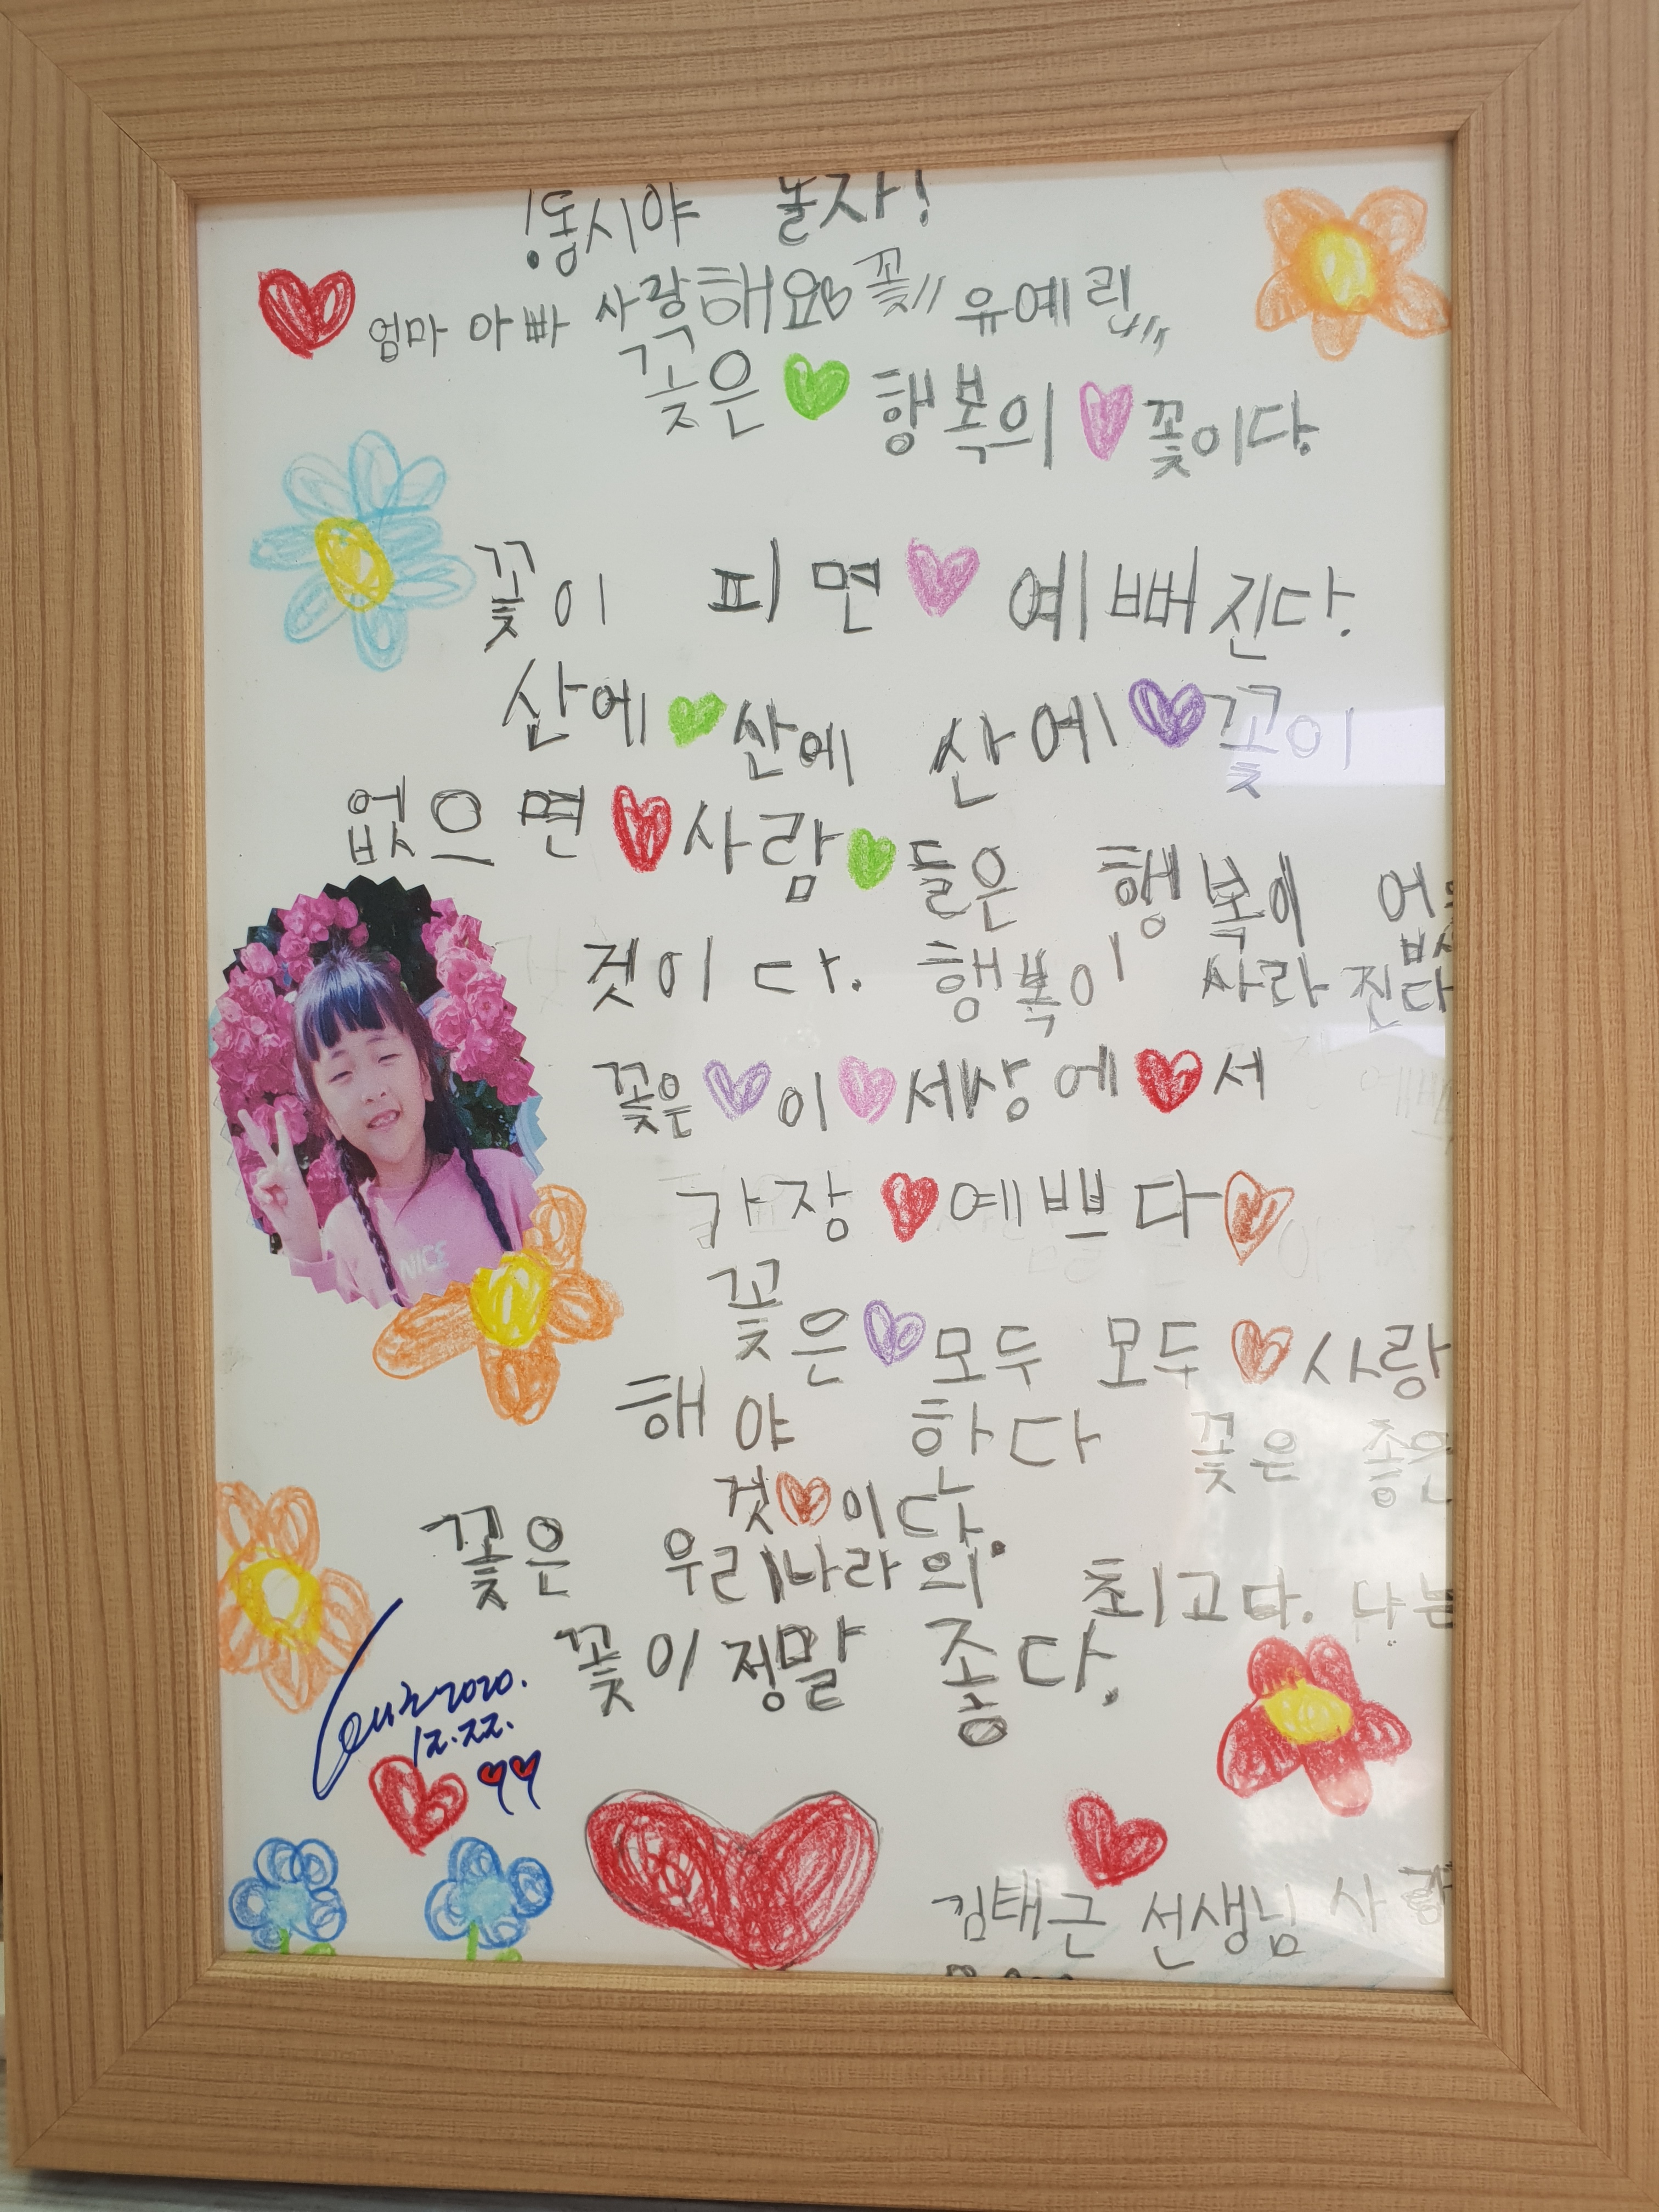 !동시야 놀자!
엄마 아빠 사랑해요 꽃 유예린
꽃은 행복의 꽃이다.
꽃이 피면 예뻐진다.
산에 산에 산에 꽃이
없으면 사람들은 행복이 없
것이다. 행복이 사라진다
꽃은 이 세상에서
가장 예쁘다
꽃은 모두 모두 사랑
해야 한다 꽃은 좋은
것이다.
꽃은 우리나라의 최고다. 나는
꽃이 정말 좋다.
NICE
2020.
12.22.
김태근 선생님 사랑